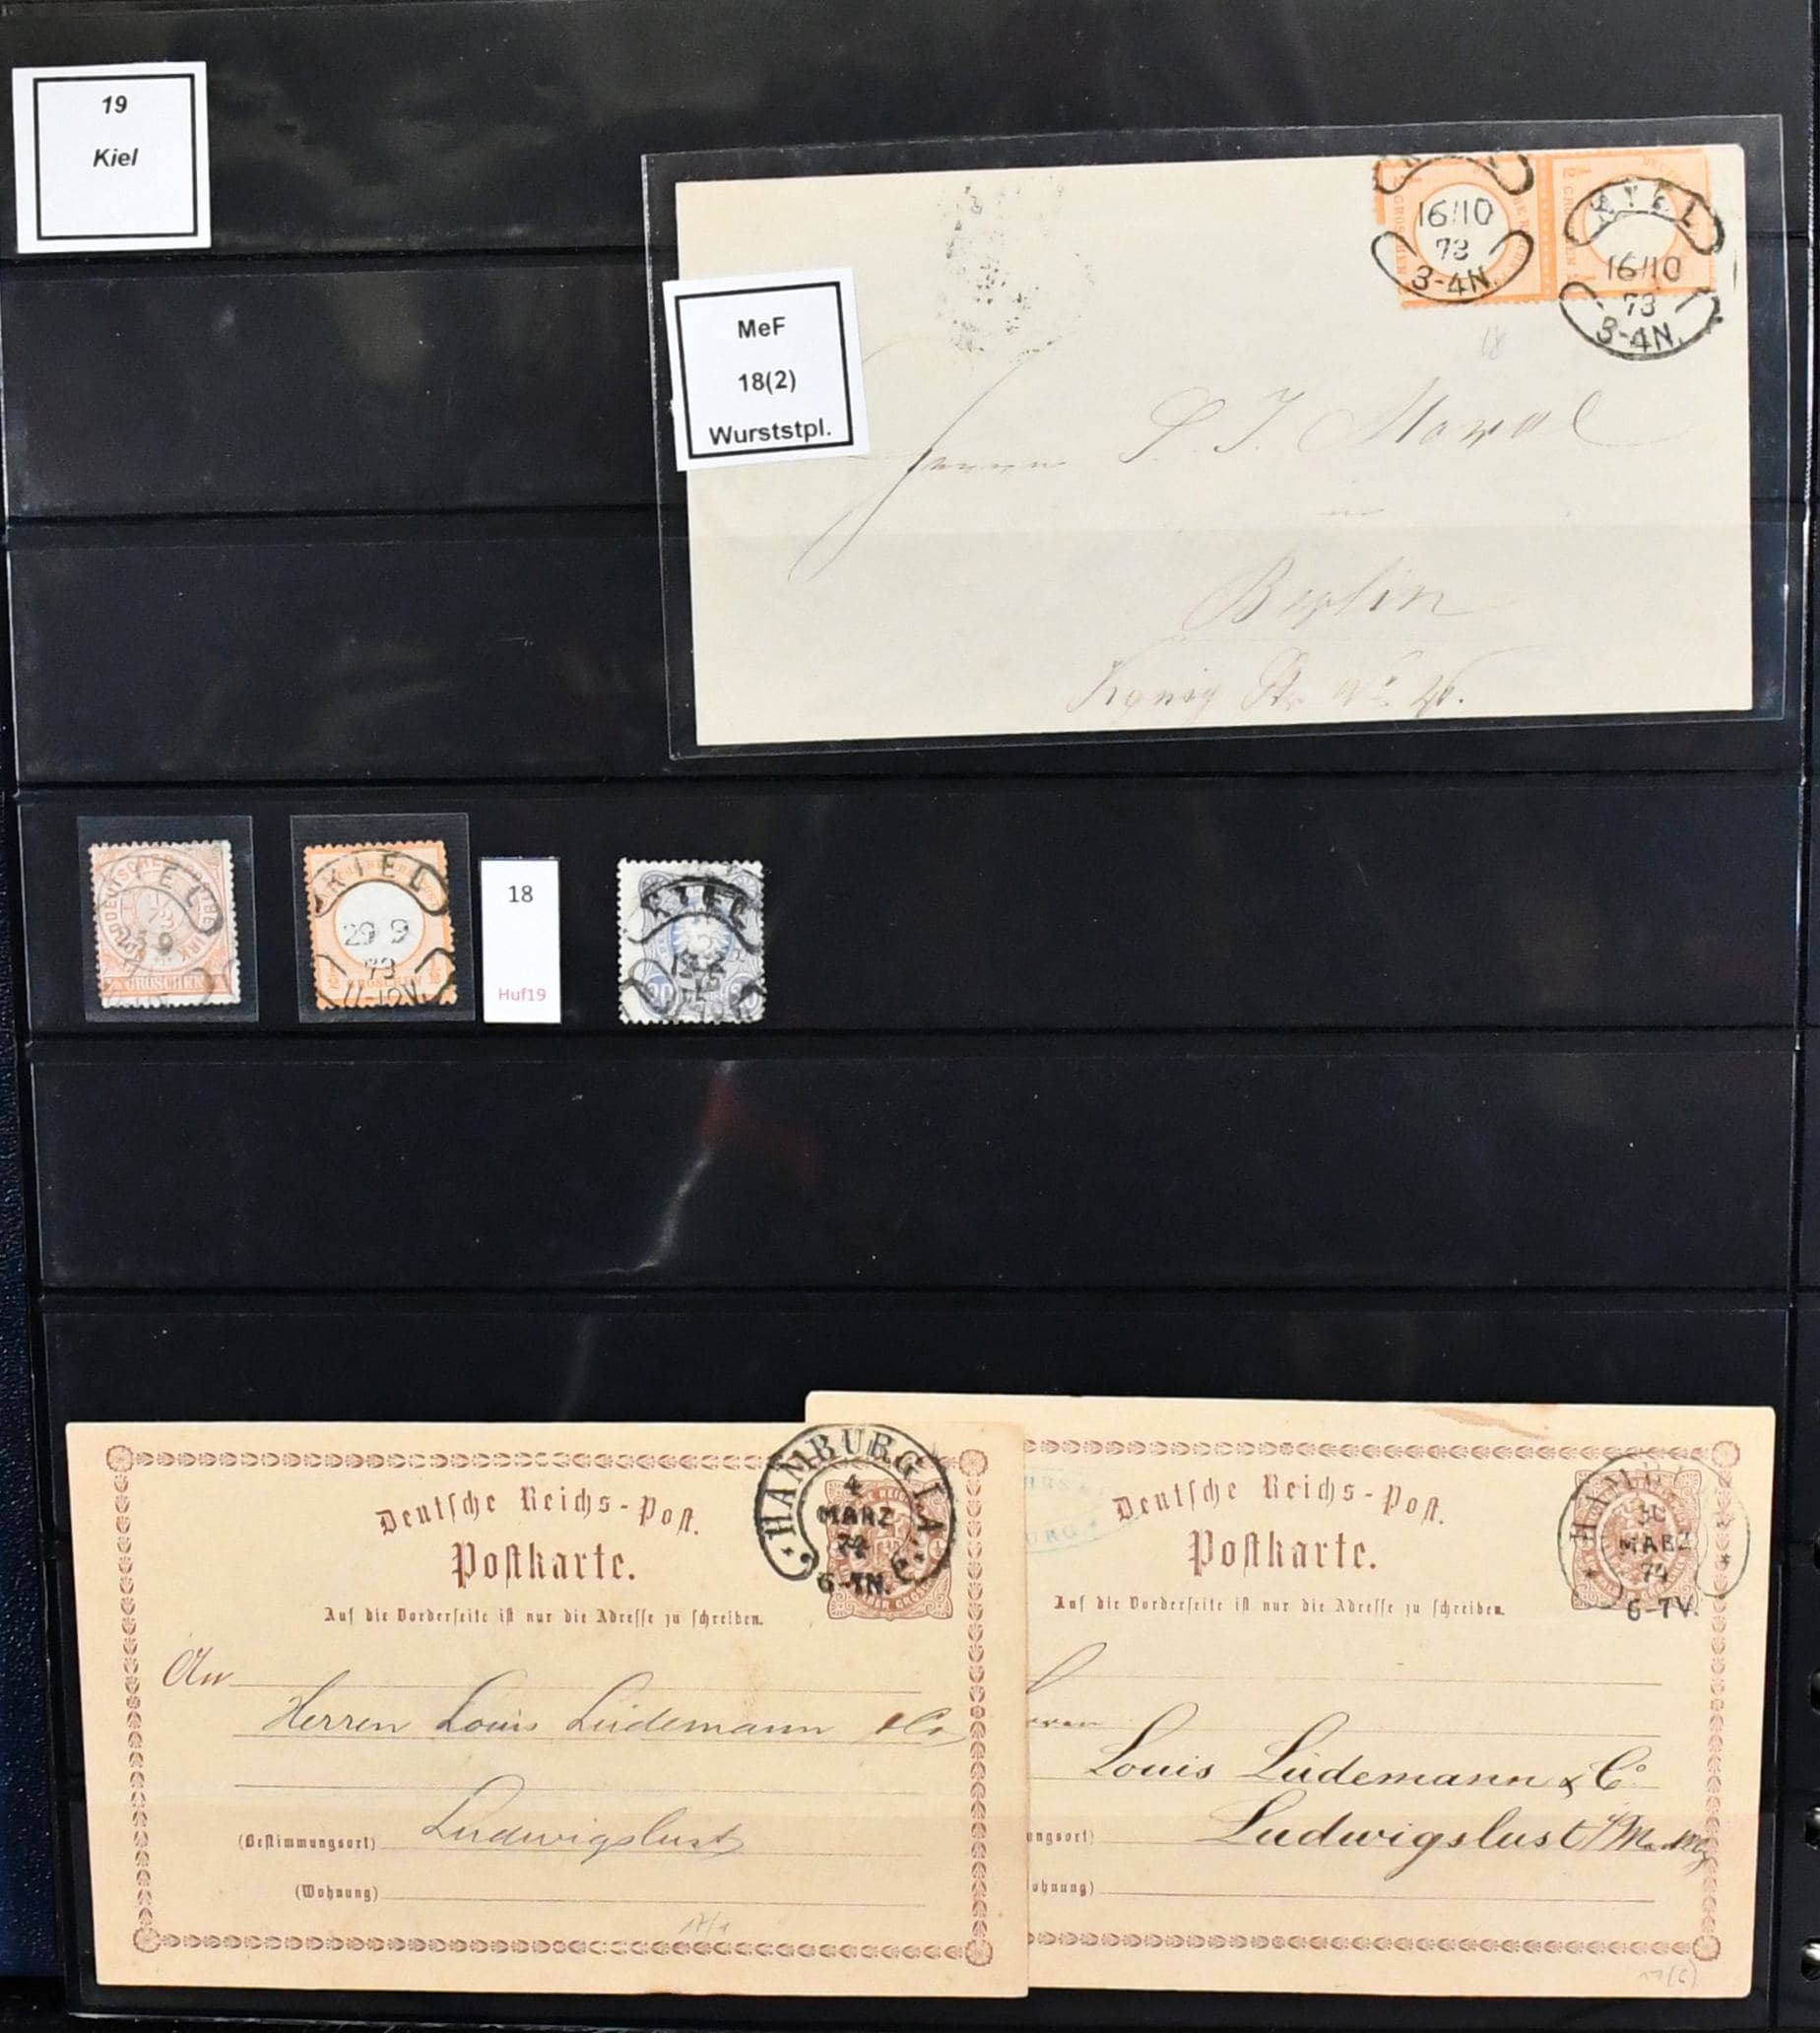 19
Kiel
16/10
73
3-4N.
KIEL
16/10
73
3-4N.
18
MeF
18(2)
Wurststpl.
Herrn
in
Berlin
KIEL
GROSCHEN
KIEL
29 9
73
11-12V.
18
Huf19
KIEL
HAMBURG I.A.
4
MÄRZ
74
6-7N.
Deutsche Reichs-Post.
Postkarte.
Auf die Vorderseite ist nur die Adresse zu schreiben.
An
Herren Louis Lüdemann & Co
(Bestimmungsort) Ludwigslust
(Wohnung)
17/1
31
MÄRZ
74
6-7V.
Deutsche Reichs-Post.
Postkarte.
Auf die Vorderseite ist nur die Adresse zu schreiben.
Louis Lüdemann & Co
ngsort) Ludwigslust
ohnung)